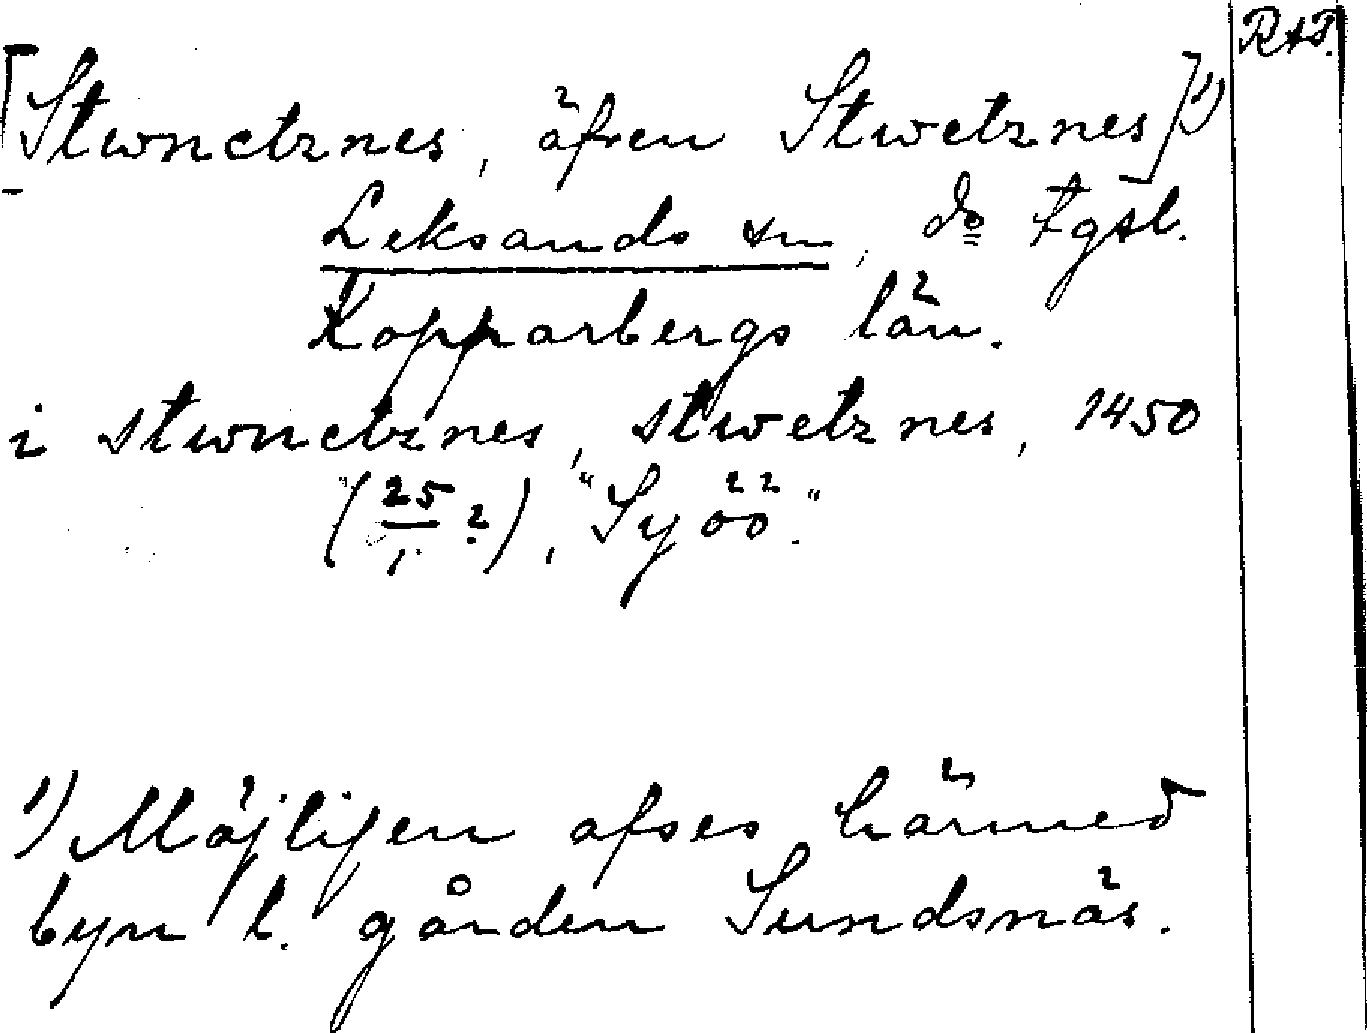 RAP.
[Stwnetznes, äfven Stwetznes]¹⁾
Leksands sn, do tgsl.
Kopparbergs län.
i stwnetznes, stwetznes, 1450
(25/1 ?), "Syöö."
1) Möjligen afses härmed
byn l. gården Sundsnäs.